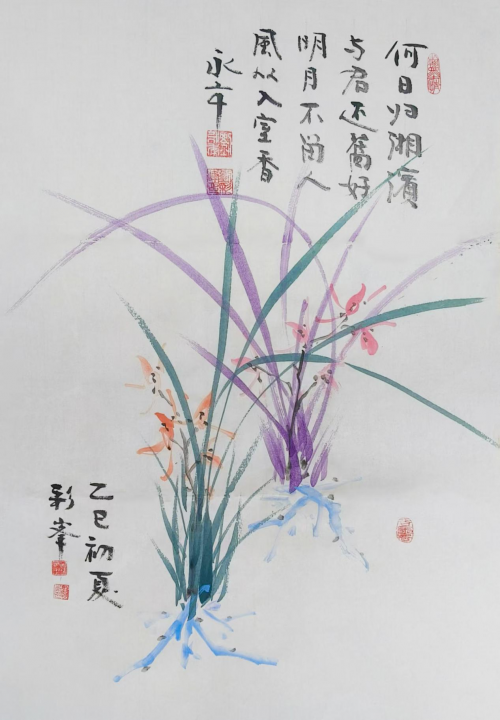 何日归湘濱
与君还舊好
明月不留人
風从入室香
永年
乙巳初夏
彩峯